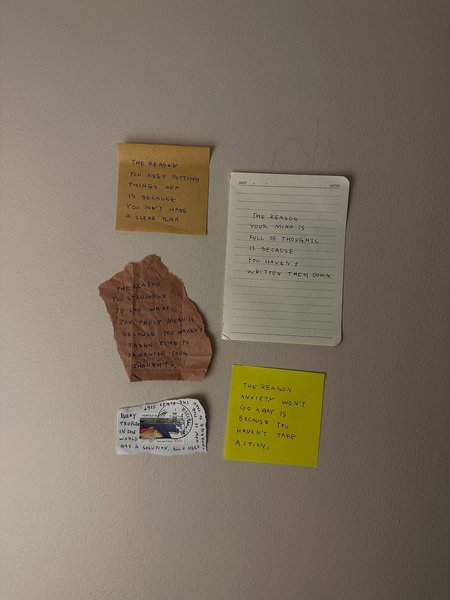 THE REASON
YOU KEEP PUTTING
THINGS OFF
IS BECAUSE
YOU DON'T HAVE
A CLEAR PLAN.
THE REASON
YOUR MIND IS
FULL OF THOUGHTS
IS BECAUSE
YOU HAVEN'T
WRITTEN THEM DOWN
THE REASON
YOU STRUGGLE
TO SAY WHAT
YOU TRULY MEAN IS
BECAUSE YOU HAVEN'T
TAKEN TIME TO
ORGANISE YOUR
THOUGHTS.
THE REASON
ANXIETY WON'T
GO AWAY IS
BECAUSE YOU
HAVEN'T TAKE
ACTION.
EVERY
PROBLEM
IN THE
WORLD
HAS A SOLUTION. ALL U NEED